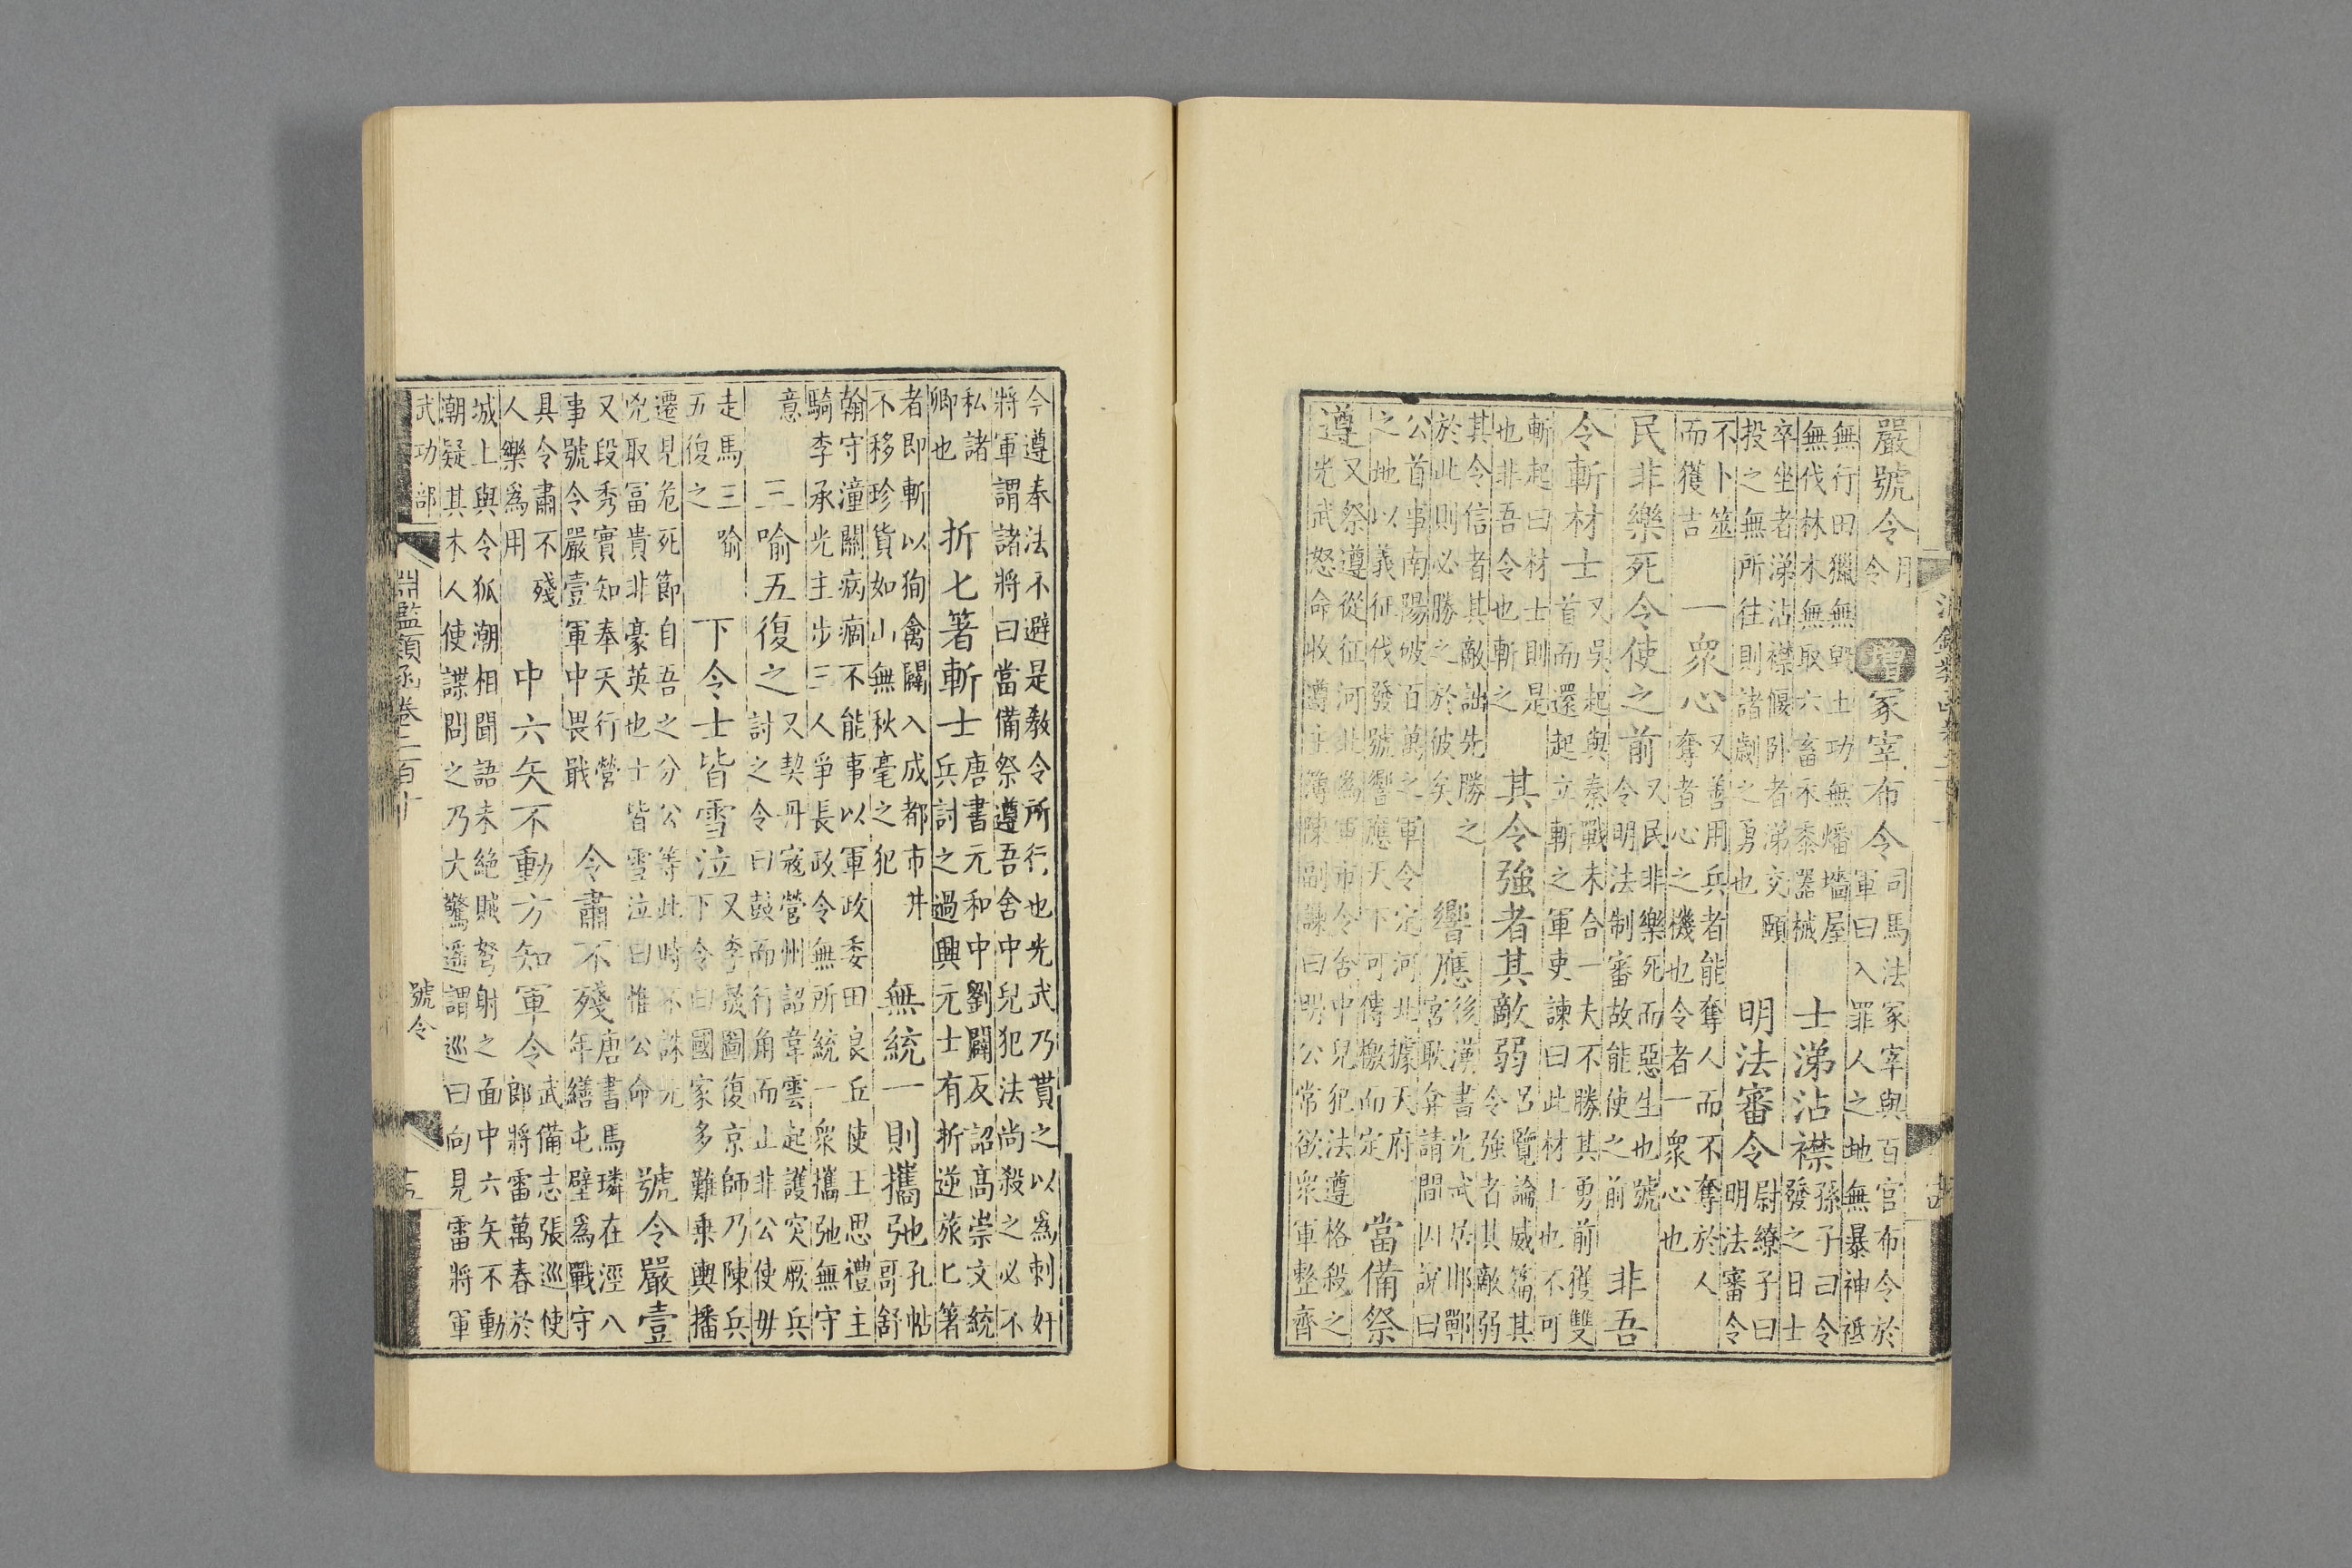 嚴號令月令增冢宰布令司馬法冢宰與百官布令於軍曰入罪人之地無暴神祗
無行田獵無毀土功無燔墻屋無伐林木無取六畜禾黍器械士涕沾襟孫子曰令發之日士
卒坐者涕沾襟偃卧者涕交頤投之無所往則諸劌之勇也明法審令尉繚子曰明法審令
不卜筮而獲吉一衆心又善用兵者能奪人而不奪於人奪者心之機也令者一衆心也
民非樂死令使之前又民非樂死而惡生也號令明法制審故能使之前非吾
令斬材士又吳起與秦戰未合一夫不勝其勇前獲雙首而還起立斬之軍吏諫曰此材士也不可
斬起曰材士則是也非吾令也斬之其令強者其敵弱呂覽論威篇其令強者其敵弱
其令信者其敵詘先勝之於此則必勝之於彼矣響應後漢書光武居邯鄲宮耿弇請問因說曰
公首事南陽破百萬之軍今定河北據天府之地以義征伐發號響應天下可傳檄而定當備祭
遵又祭遵從征河北為軍市令舍中兒犯法遵格殺之光武怒命收遵主簿陳副諫曰明公常欲衆軍整齊
今遵奉法不避是教令所行也光武乃貰之以爲刺奸將軍謂諸將曰當備祭遵吾舍中兒犯法尚殺之必不
私諸卿也折匕箸斬士唐書元和中劉闢反詔高崇文統兵討之過興元士有折逆旅匕箸
者即斬以狥禽闢入成都市井不移珍貨如山無秋毫之犯無統一則攜弛孔帖哥舒
翰守潼關病痼不能事以軍政委田良丘使王思禮主騎李承光主步三人爭長政令無所統一衆攜弛無守
意三喻五復之又契丹寇營州詔韋雲起護突厥兵討之令曰鼓而行角而止非公使毋
走馬三喻五復之下令士皆雪泣又李晟圖復京師乃陳兵下令曰國家多難乗輿播
遷見危死節自吾之分公等此時不誅元兇取冨貴非豪英也士皆雪泣曰惟公命號令嚴壹
又段秀實知奉天行營事號令嚴壹軍中畏戢令肅不殘唐書馬璘在涇八年繕屯壁爲戰守
具令肅不殘人樂爲用中六矢不動方知軍令武備志張巡使郎將雷萬春於
城上與令狐潮相聞語未絕賊弩射之面中六矢不動朝疑其木人使諜問之乃大驚遥謂巡曰向見雷將軍
武功部淵鑑類函卷二百十號令